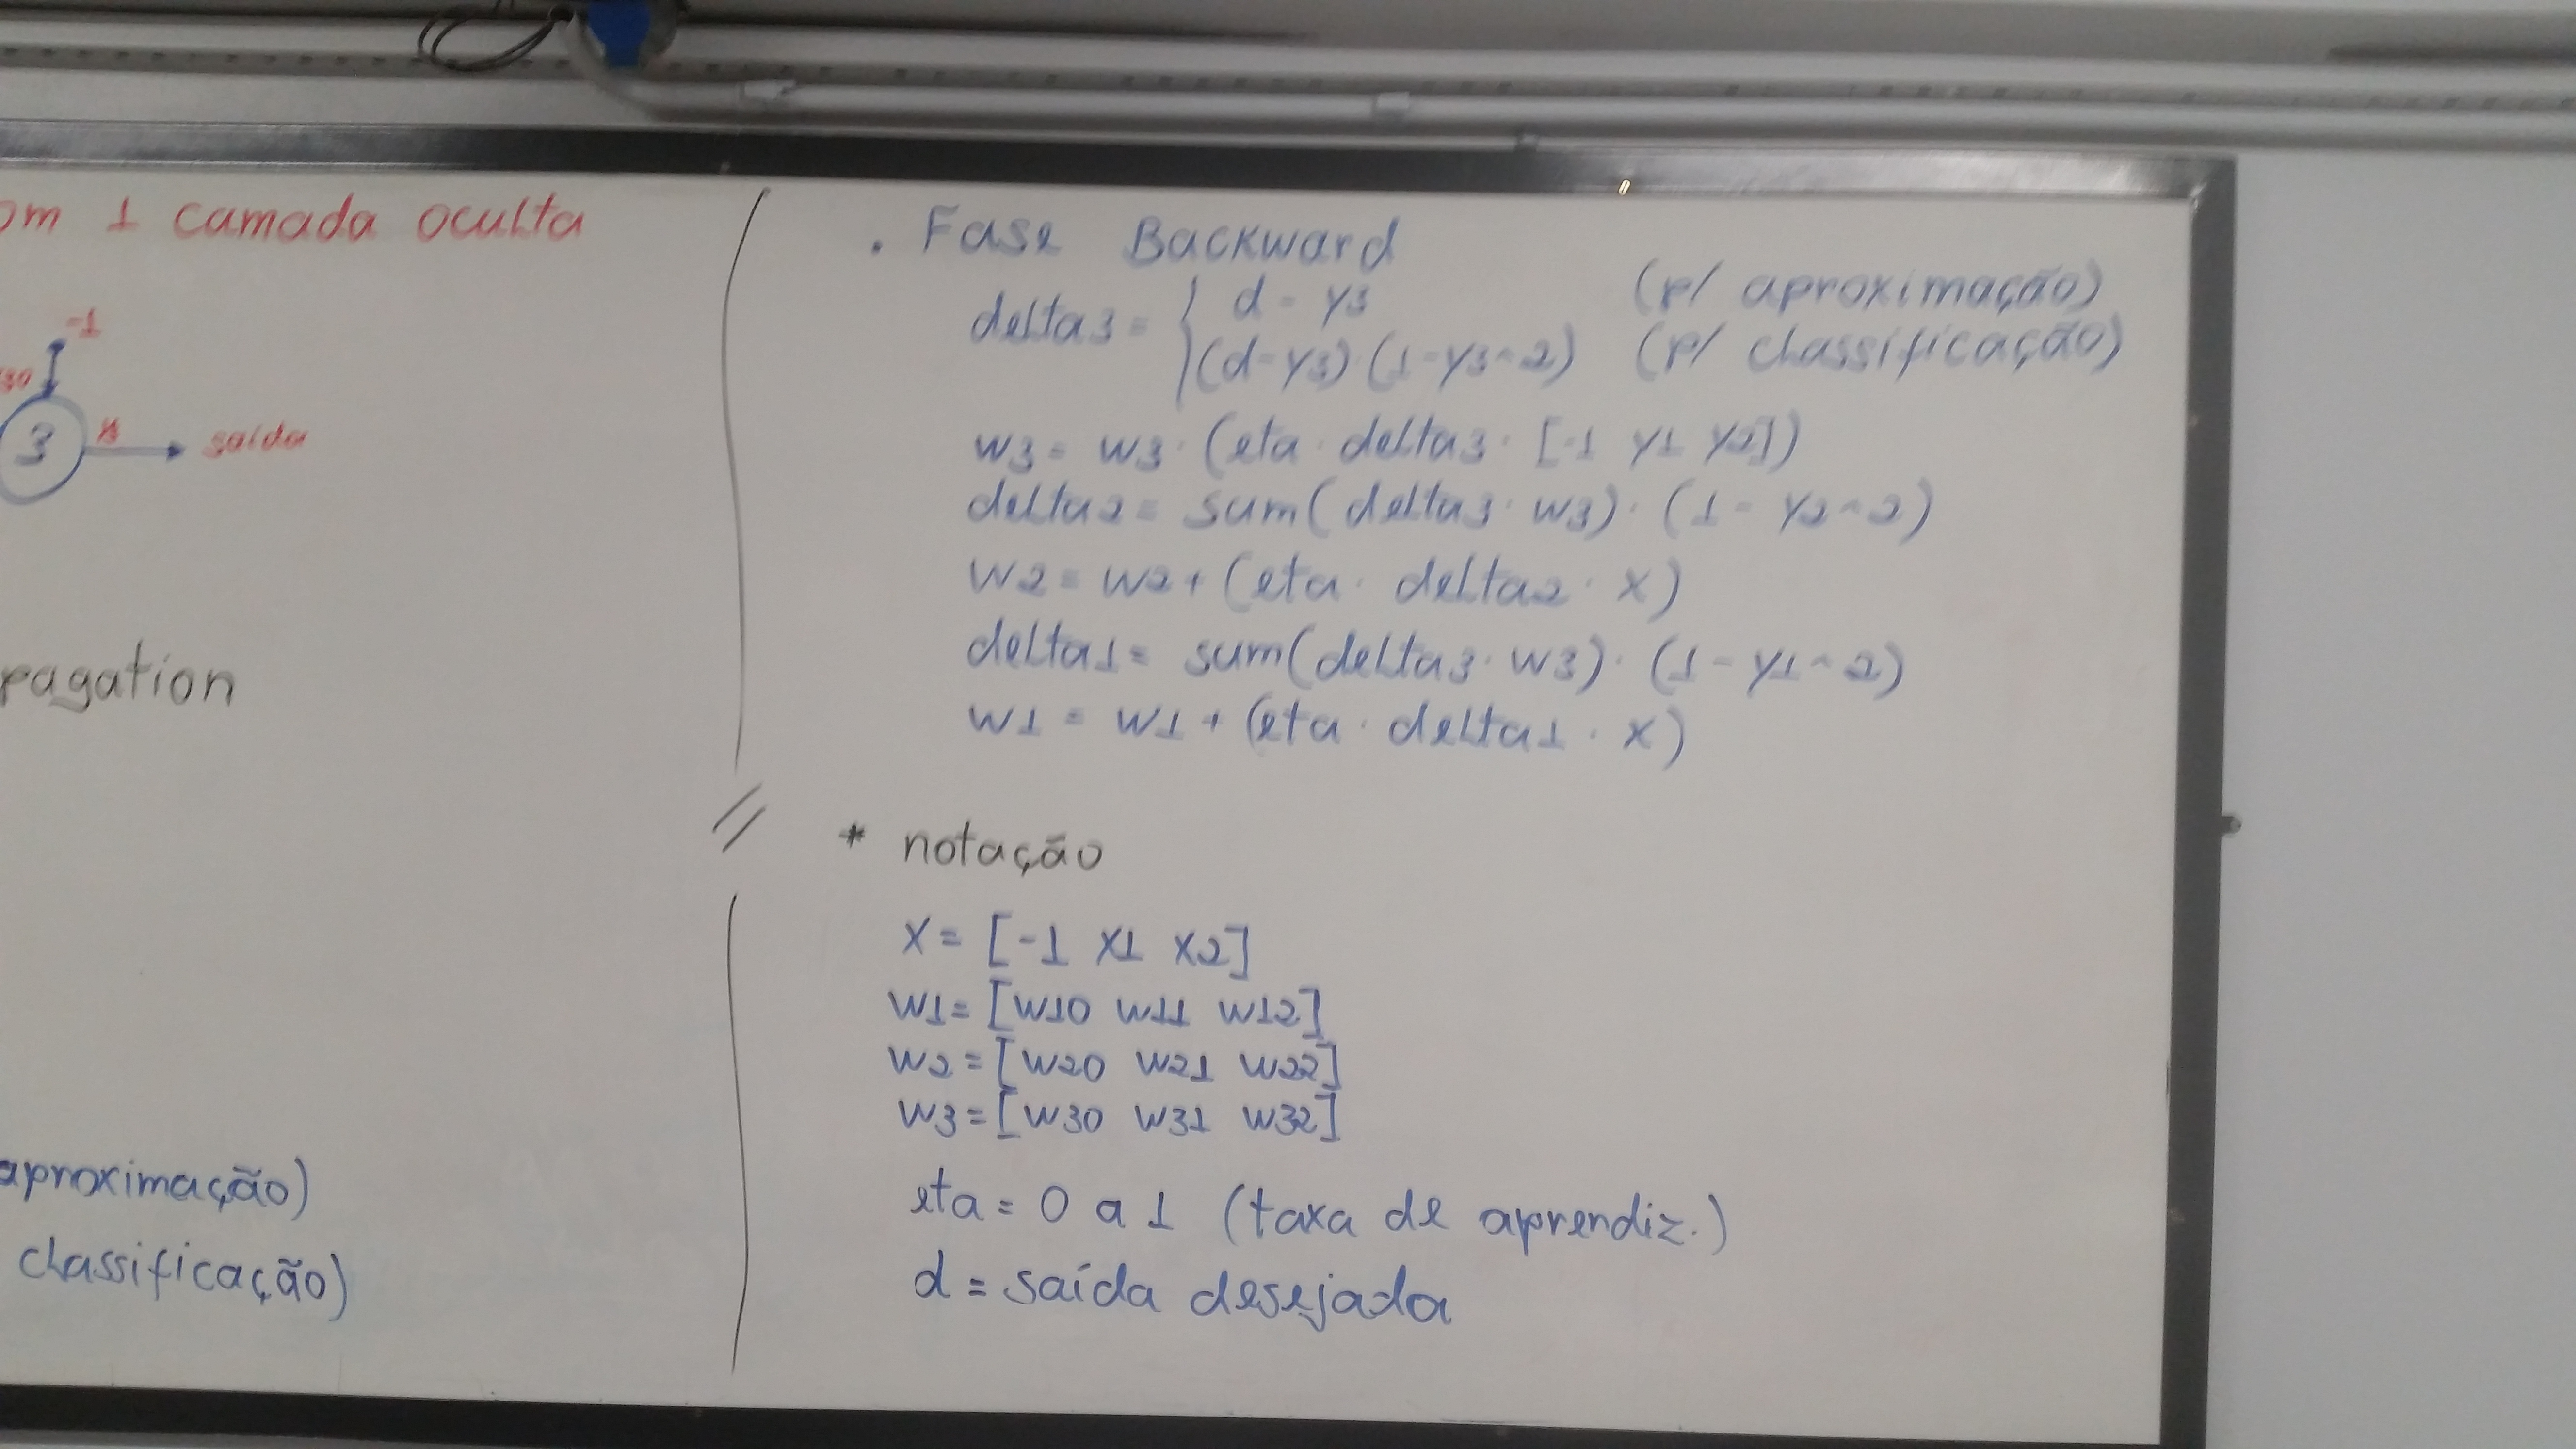 om 1 camada oculta
-1
30
3
y3
saída
pagation
aproximação)
classificação)
. Fase Backward
delta3 = { d - y3 (p/ aproximação)
(d-y3)·(1-y3^2) (p/ classificação)
w3 = w3 · (eta · delta3 · [-1 y1 y2])
delta2 = sum(delta3 · w3) · (1 - y2^2)
w2 = w2 + (eta · delta2 · x)
delta1 = sum(delta3 · w3) · (1 - y1^2)
w1 = w1 + (eta · delta1 · x)
// * notação
x = [-1 x1 x2]
w1 = [w10 w11 w12]
w2 = [w20 w21 w22]
w3 = [w30 w31 w32]
eta = 0 a 1 (taxa de aprendiz.)
d = saída desejada